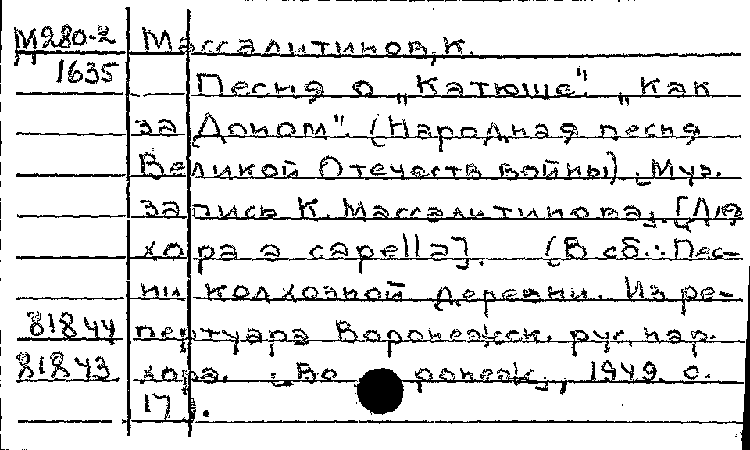 М280-2 Массалитинов, К.
1635 Песня о „Катюше". „Как
за Доном". (Народная песня
Великой Отечеств. войны). [Муз.
запись К. Массалитинова]. [Для
хора a capella]. (В сб.: Пес-
ни колхозной деревни. Из ре-
81844 пертуара Воронежск. рус. нар.
81843 хора. [Воронеж], 1949. с.
17).